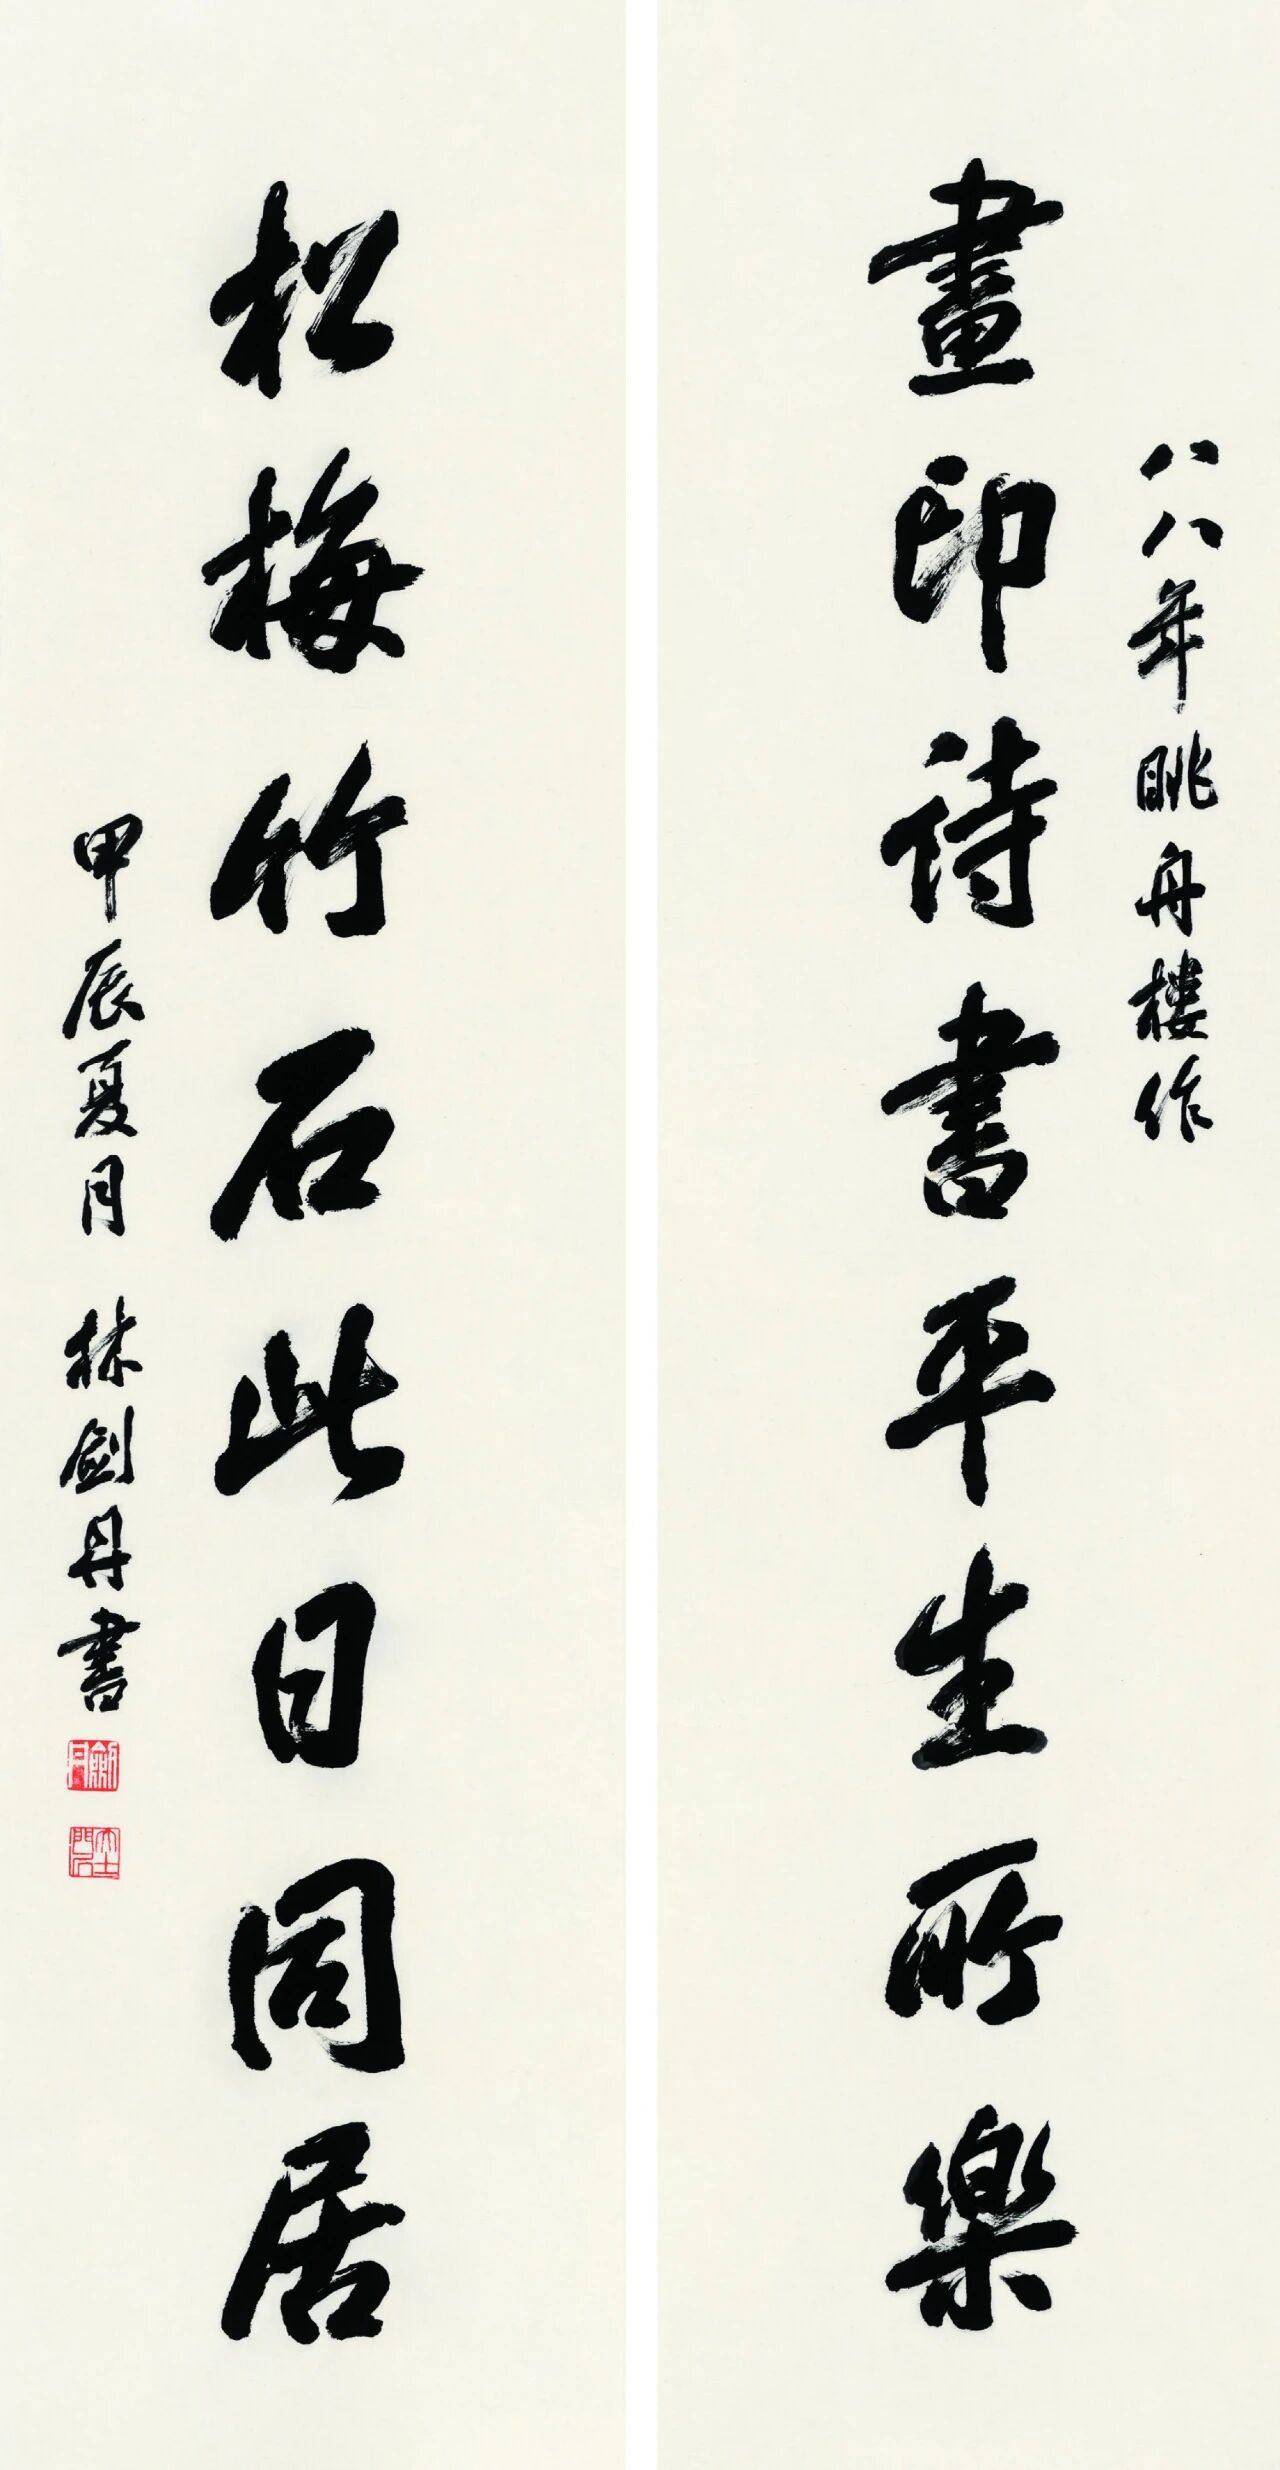 八八年眺舟樓作
畫印詩書平生所樂
松梅竹石此日同居
甲辰夏月 林劍丹書
劍丹